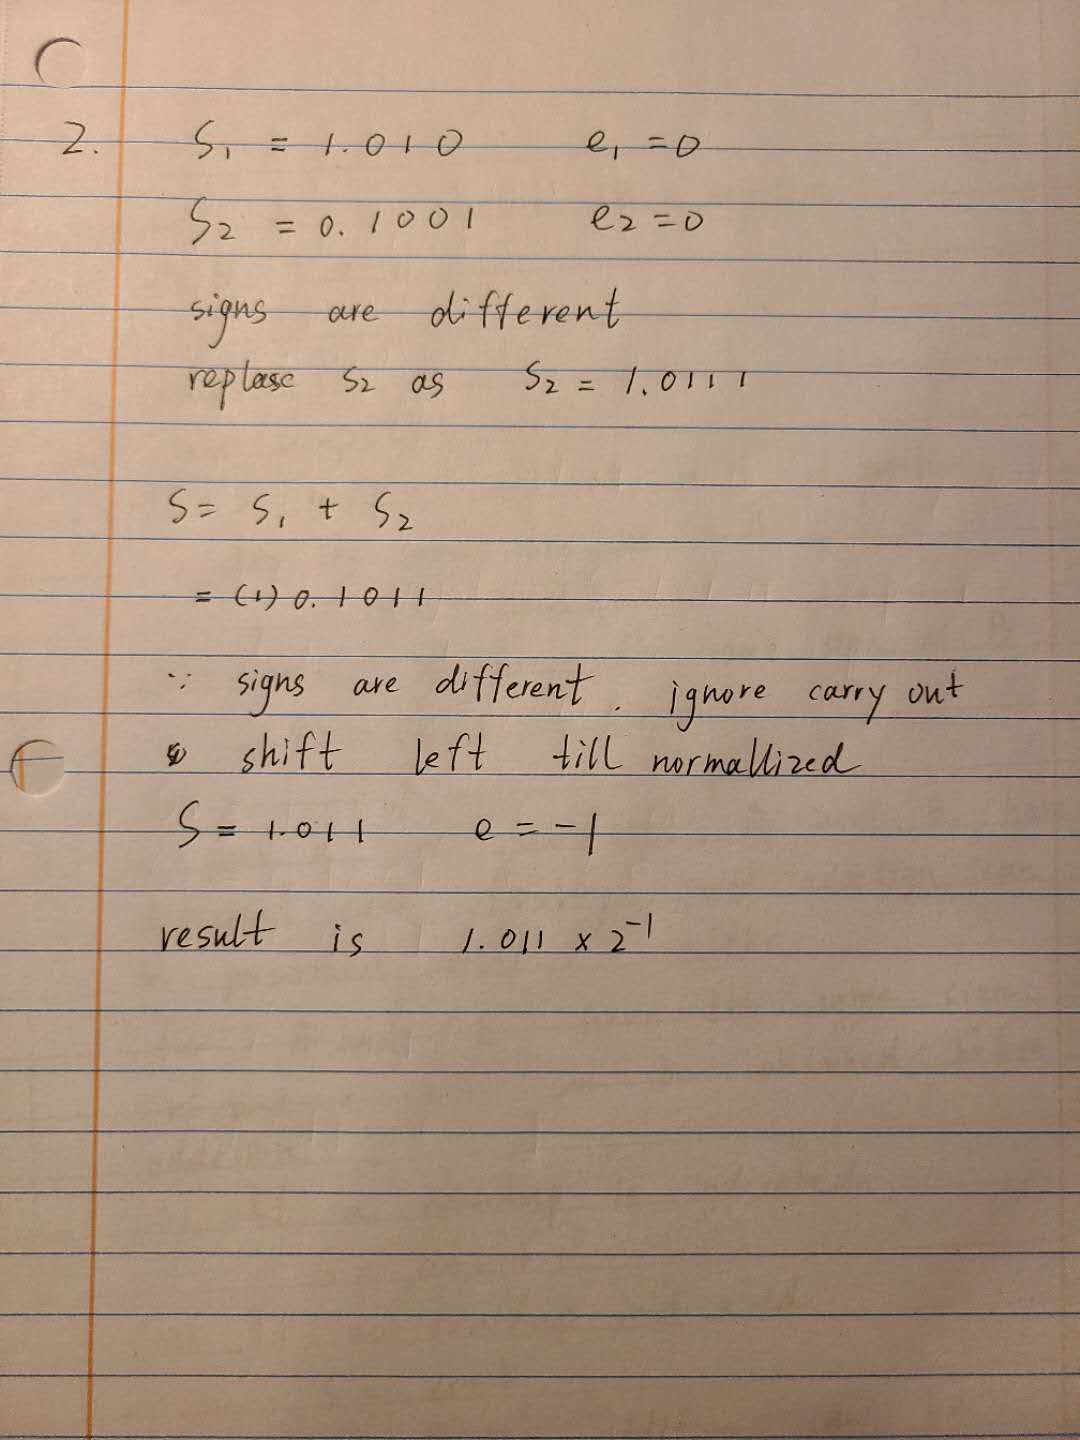 2. S₁ = 1.010 e₁ = 0
S₂ = 0.1001 e₂ = 0
signs are different
replase S₂ as S₂ = 1.0111
S = S₁ + S₂
= (1) 0.1011
∵ signs are different. ignore carry out
shift left till normallized
S = 1.011 e = -1
result is 1.011 × 2⁻¹